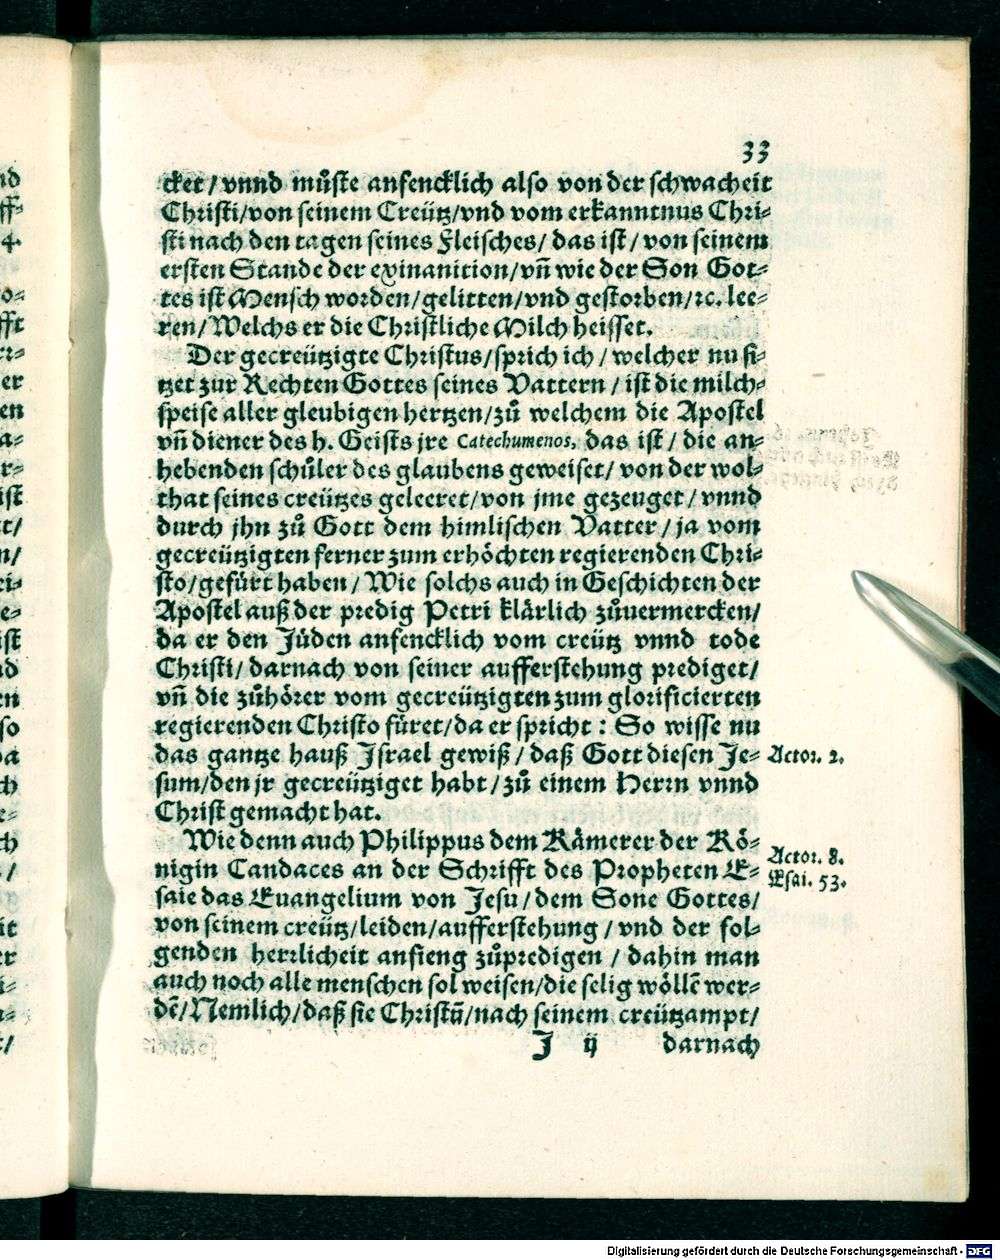 33
cket / vnnd můste anfencklich also von der schwacheit
Christi/von seinem Creütz/vnd vom erkanntnus Chri-
sti nach den tagen seines Fleisches/ das ist/ von seinem
ersten Stande der exinanition/vn̄ wie der Son Got-
tes ist Mensch worden/gelitten/vnd gestorben/ꝛc. lee-
ren/ Welchs er die Christliche Milch heisset.
Der gecreützigte Christus/sprich ich / welcher nu si-
tzet zur Rechten Gottes seines Vattern / ist die milch-
speise aller gleubigen hertzen/zů welchem die Apostel
vn̄ diener des h. Geists jre Catechumenos, das ist/ die an-
hebenden schůler des glaubens geweiset/ von der wol-
that seines creützes geleeret/von jme gezeuget/ vnnd
durch jhn zů Gott dem himlischen Vatter/ ja vom
gecreützigten ferner zum erhöchten regierenden Chri-
sto/gefürt haben / Wie solchs auch in Geschichten der
Apostel auß der predig Petri klärlich zůuermercken/
da er den Jüden anfencklich vom creütz vnnd tode
Christi/ darnach von seiner aufferstehung prediget/
vn̄ die zůhörer vom gecreützigten zum glorificierten
regierenden Christo füret/da er spricht : So wisse nu
das gantze hauß Israel gewiß/ daß Gott diesen Je-
sum/den jr gecreütziget habt/zů einem Herrn vnnd
Christ gemacht hat.
Actor. 2.
Wie denn auch Philippus dem Kämerer der Kö-
nigin Candaces an der Schrifft des Propheten E-
saie das Euangelium von Jesu/dem Sone Gottes/
von seinem creütz/leiden/aufferstehung / vnd der fol-
genden herrlicheit anfieng zůpredigen / dahin man
auch noch alle menschen sol weisen/die selig wöllē wer-
dē/Nemlich/daß sie Christū/nach seinem creützampt/
Actor. 8.
Esai. 53.
J ij darnach
Digitalisierung gefördert durch die Deutsche Forschungsgemeinschaft - DFG